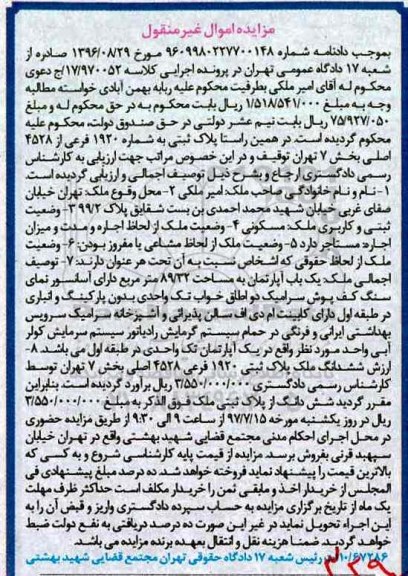 مزایده اموال غیر منقول
بموجب دادنامه شماره ۹۶۰۹۹۸۰۲۲۷۷۰۰۱۴۸ مورخ ۱۳۹۶/۰۸/۲۹ صادره از
شعبه ۱۷ دادگاه عمومی تهران در پرونده اجرایی کلاسه ۱۷/۹۷۰۰۵۲ج دعوی
محکوم له آقای امیر ملکی بطرفیت محکوم علیه ربابه بهمن آبادی خواسته مطالبه
وجه به مبلغ ۱/۵۱۸/۵۴۱/۰۰۰ ریال بابت محکوم به در حق محکوم له و مبلغ
۷۵/۹۲۷/۰۵۰ ریال بابت نیم عشر دولتی در حق صندوق دولت، محکوم علیه
محکوم گردیده است. در همین راستا پلاک ثبتی به شماره ۱۹۲۰ فرعی از ۴۵۲۸
اصلی بخش ۷ تهران توقیف و در این خصوص مراتب جهت ارزیابی به کارشناس
رسمی دادگستری ارجاع و بشرح ذیل توصیف اجمالی و ارزیابی گردیده است.
۱- نام و نام خانوادگی صاحب ملک: امیر ملکی ۲- محل وقوع ملک: تهران خیابان
صفای غربی خیابان شهید محمد احمدی بن بست شقایق پلاک ۹۹/۲ ۳- وضعیت
ثبتی و کاربری ملک: مسکونی ۴- وضعیت ملک از لحاظ اجاره و مدت و میزان
اجاره: مستأجر دارد ۵- وضعیت ملک از لحاظ مشاعی یا مفروز بودن: ۶- وضعیت
ملک از لحاظ حقوقی که اشخاص نسبت به آن تحت هر عنوان دارند: ۷- توصیف
اجمالی ملک: یک باب آپارتمان به مساحت ۸۹/۳۲ متر مربع دارای آسانسور نمای
سنگ کف پوش سرامیک دو اطاق خواب تک واحدی بدون پارکینگ و انباری
در طبقه اول دارای کابینت ام دی اف سالن پذیرائی و آشپزخانه سرامیک سرویس
بهداشتی ایرانی و فرنگی در حمام سیستم گرمایش رادیاتور سیستم سرمایش کولر
آبی واحد مورد نظر واقع در یک آپارتمان تک واحدی در طبقه اول می باشد. ۸-
ارزش ششدانگ ملک پلاک ثبتی ۱۹۲۰ فرعی ۴۵۲۸ اصلی بخش ۷ تهران توسط
کارشناس رسمی دادگستری ۳/۵۵۰/۰۰۰/۰۰۰ ریال برآورد گردیده است. بنابراین
مقرر گردید شش دانگ از پلاک ثبتی ملک فوق الذکر به مبلغ ۳/۵۵۰/۰۰۰/۰۰۰
ریال در روز یکشنبه مورخه ۹۷/۷/۱۵ از ساعت ۹ الی ۹:۳۰ از طریق مزایده حضوری
در محل اجرای احکام مدنی مجتمع قضایی شهید بهشتی واقع در تهران خیابان
سپهبد قرنی بفروش برسد. مزایده از قیمت پایه کارشناسی شروع و به کسی که
بالاترین قیمت را پیشنهاد نماید فروخته خواهد شد. ده درصد مبلغ پیشنهادی فی
المجلس از خریدار اخذ و مابقی ثمن را خریدار مکلف است حداکثر ظرف مهلت
یک ماه از تاریخ برگزاری مزایده به حساب سپرده دادگستری واریز و قبض آن را به
این اجراء تحویل نماید در غیر این صورت ده درصد دریافتی به نفع دولت ضبط
خواهد گردید. ضمنا هزینه نقل و انتقال بعهده برنده مزایده می باشد.
۱۰/۶۷۲۸۶ رئیس شعبه ۱۷ دادگاه حقوقی تهران مجتمع قضایی شهید بهشتی